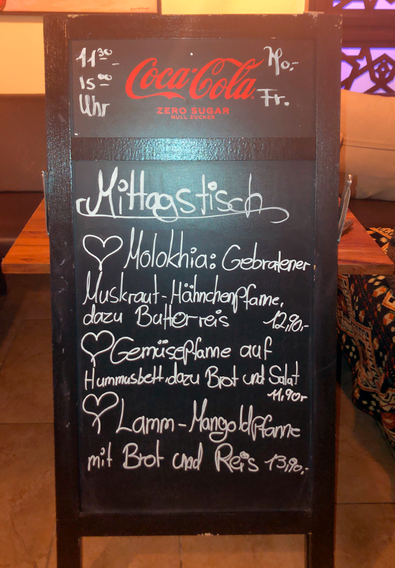 11³⁰-
15⁰⁰
Uhr
Coca-Cola
ZERO SUGAR
NULL ZUCKER
Mo.-
Fr.
Mittagstisch
Molokhia: Gebratener
Muskraut-Hähnchenpfanne,
dazu Butterreis 12,90,-
Gemüsepfanne auf
Hummusbett, dazu Brot und Salat
11,90,-
Lamm-Mangoldpfanne
mit Brot und Reis 13,90,-